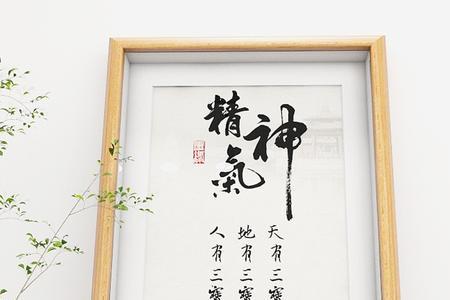 精氣神
天有三寶
地有三寶
人有三寶